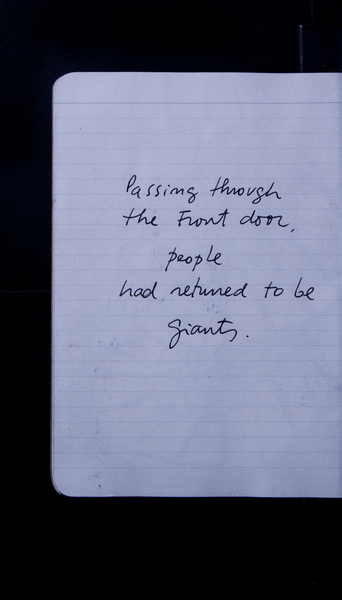 Passing through
the Front door,
people
had returned to be
Giants.